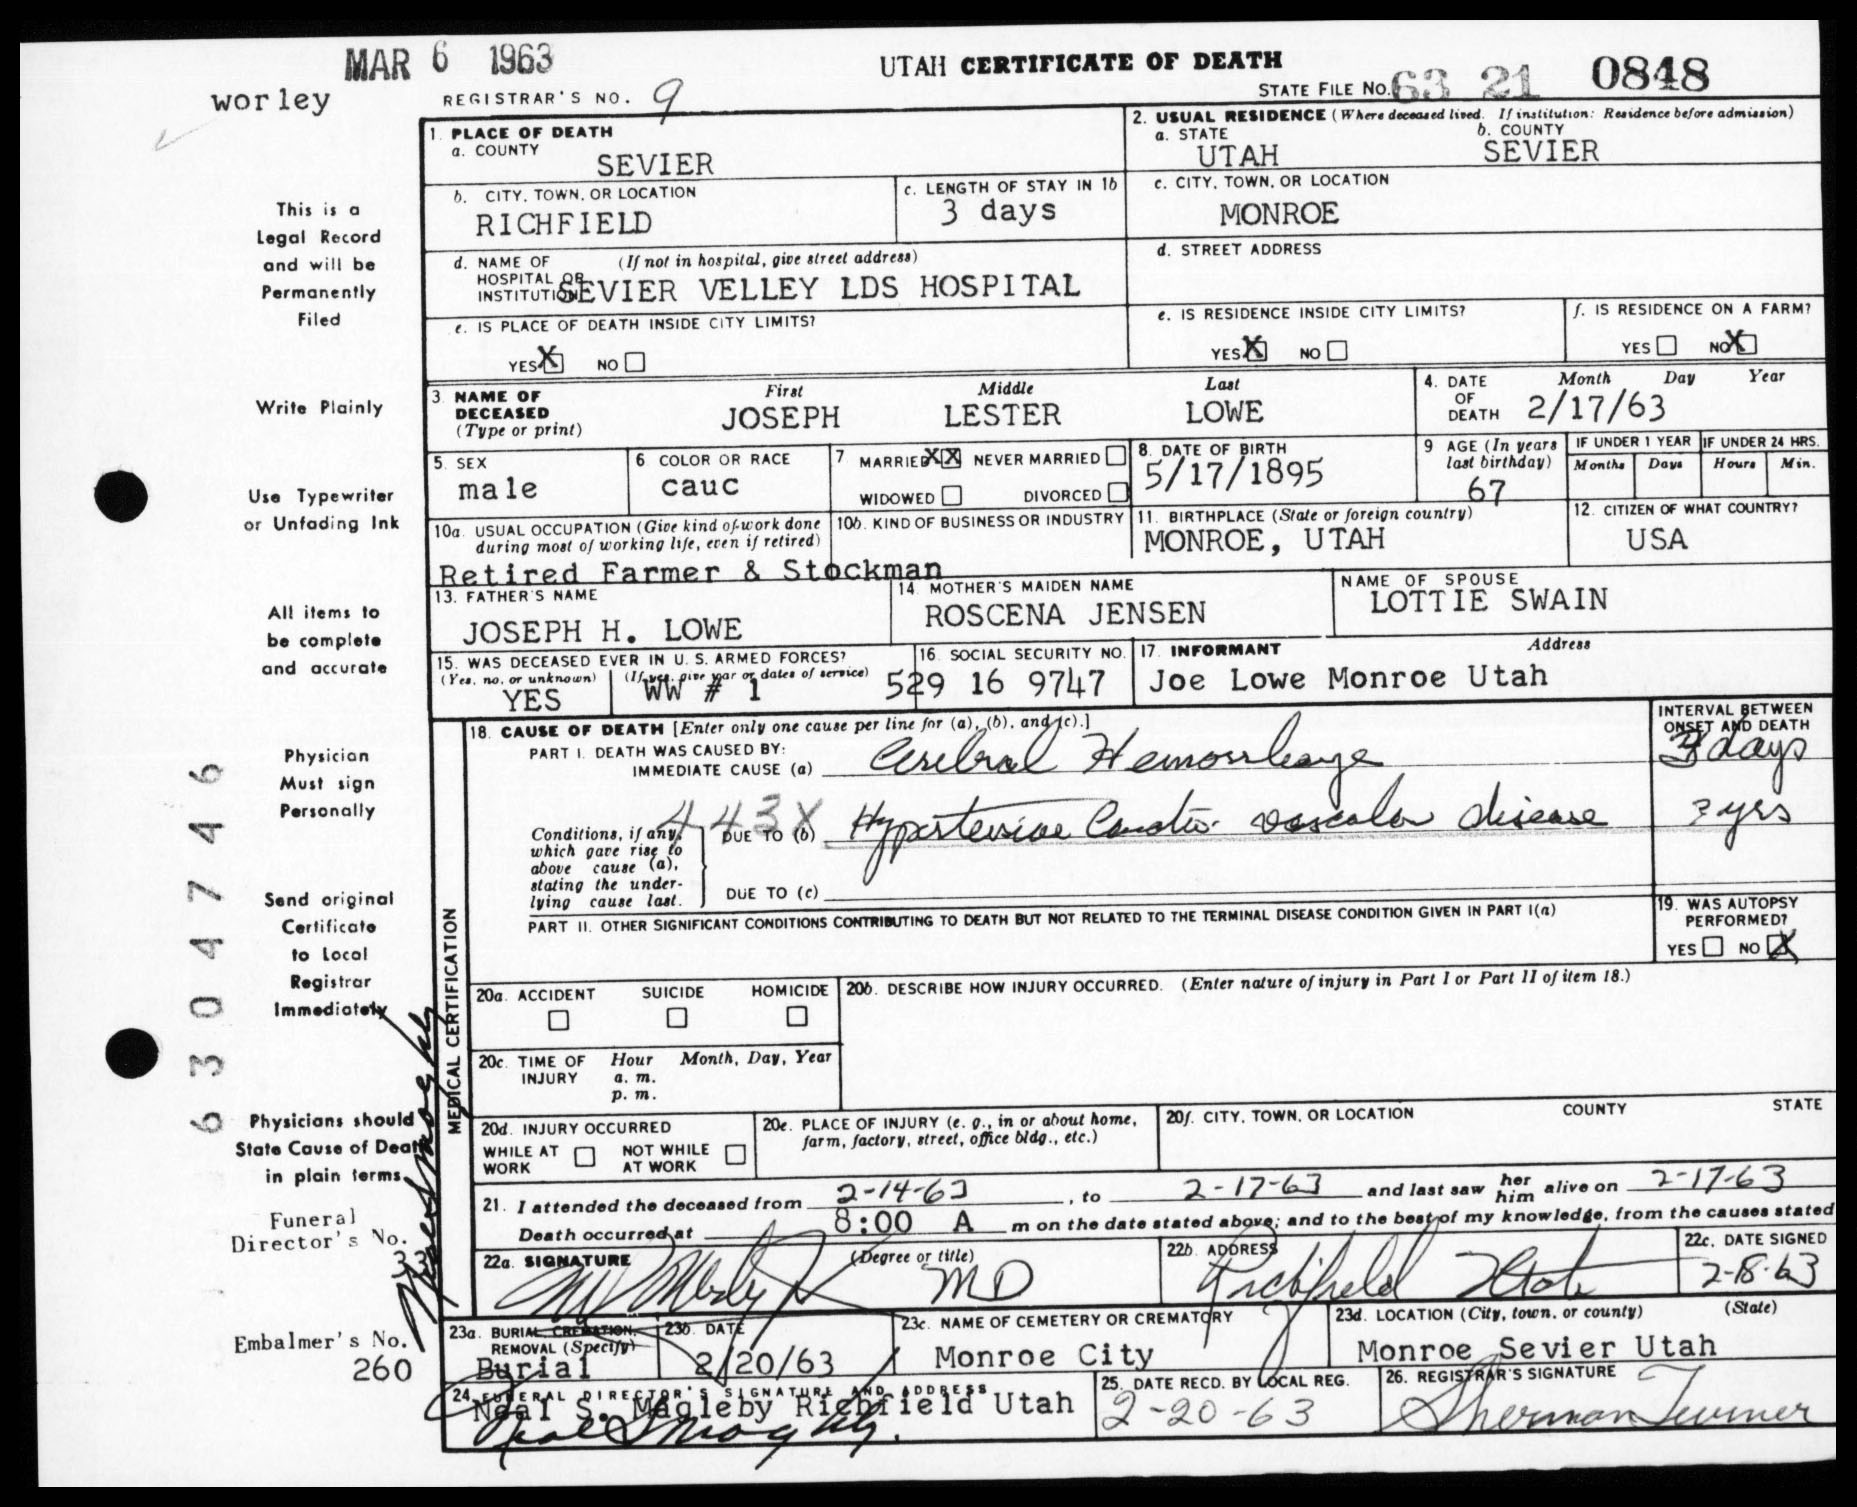 MAR 6 1963
UTAH CERTIFICATE OF DEATH
worley
REGISTRAR'S NO. 9
STATE FILE NO. 63 21 0848
1. PLACE OF DEATH
a. COUNTY
SEVIER
2. USUAL RESIDENCE (Where deceased lived. If institution: Residence before admission)
a. STATE b. COUNTY
UTAH SEVIER
b. CITY, TOWN, OR LOCATION
RICHFIELD
c. LENGTH OF STAY IN 1b
3 days
c. CITY, TOWN, OR LOCATION
MONROE
d. NAME OF (If not in hospital, give street address)
HOSPITAL OR
INSTITUTION SEVIER VELLEY LDS HOSPITAL
d. STREET ADDRESS
e. IS PLACE OF DEATH INSIDE CITY LIMITS?
YES X NO
e. IS RESIDENCE INSIDE CITY LIMITS?
YES X NO
f. IS RESIDENCE ON A FARM?
YES NO X
3. NAME OF
DECEASED
(Type or print)
First Middle Last
JOSEPH LESTER LOWE
4. DATE
OF
DEATH
Month Day Year
2/17/63
5. SEX
male
6. COLOR OR RACE
cauc
7 MARRIED XX NEVER MARRIED
WIDOWED DIVORCED
8. DATE OF BIRTH
5/17/1895
9 AGE (In years
last birthday)
67
IF UNDER 1 YEAR IF UNDER 24 HRS.
Months Days Hours Min.
10a. USUAL OCCUPATION (Give kind of work done
during most of working life, even if retired)
Retired Farmer & Stockman
10b. KIND OF BUSINESS OR INDUSTRY
11. BIRTHPLACE (State or foreign country)
MONROE, UTAH
12. CITIZEN OF WHAT COUNTRY?
USA
13. FATHER'S NAME
JOSEPH H. LOWE
14. MOTHER'S MAIDEN NAME
ROSCENA JENSEN
NAME OF SPOUSE
LOTTIE SWAIN
15. WAS DECEASED EVER IN U. S. ARMED FORCES?
(Yes, no, or unknown) (If yes, give war or dates of service)
YES WW # 1
16. SOCIAL SECURITY NO.
529 16 9747
17. INFORMANT Address
Joe Lowe Monroe Utah
MEDICAL CERTIFICATION
18. CAUSE OF DEATH [Enter only one cause per line for (a), (b), and (c).]
PART I. DEATH WAS CAUSED BY:
IMMEDIATE CAUSE (a) Cerebral Hemorrhage
INTERVAL BETWEEN
ONSET AND DEATH
3 days
443X
Conditions, if any,
which gave rise to
above cause (a),
stating the under-
lying cause last.
DUE TO (b) Hypertensive Cardio-vascular disease
? yrs
DUE TO (c)
PART II. OTHER SIGNIFICANT CONDITIONS CONTRIBUTING TO DEATH BUT NOT RELATED TO THE TERMINAL DISEASE CONDITION GIVEN IN PART I(a)
19. WAS AUTOPSY
PERFORMED?
YES NO X
20a. ACCIDENT SUICIDE HOMICIDE
20b. DESCRIBE HOW INJURY OCCURRED. (Enter nature of injury in Part I or Part II of item 18.)
20c. TIME OF Hour Month, Day, Year
INJURY a. m.
p. m.
20d. INJURY OCCURRED
WHILE AT NOT WHILE
WORK AT WORK
20e. PLACE OF INJURY (e. g., in or about home,
farm, factory, street, office bldg., etc.)
20f. CITY, TOWN, OR LOCATION COUNTY STATE
21. I attended the deceased from 2-14-63, to 2-17-63 and last saw her him alive on 2-17-63
Death occurred at 8:00 A m on the date stated above; and to the best of my knowledge, from the causes stated
22a. SIGNATURE (Degree or title)
MD
22b. ADDRESS
Richfield Utah
22c. DATE SIGNED
2-18-63
23a. BURIAL, CREMATION,
REMOVAL (Specify)
Burial
23b. DATE
2/20/63
23c. NAME OF CEMETERY OR CREMATORY
Monroe City
23d. LOCATION (City, town, or county) (State)
Monroe Sevier Utah
24. FUNERAL DIRECTOR'S SIGNATURE AND ADDRESS
Neal S. Magleby Richfield Utah
Neal S Magleby.
25. DATE RECD. BY LOCAL REG.
2-20-63
26. REGISTRAR'S SIGNATURE
Sherman Turner
This is a
Legal Record
and will be
Permanently
Filed
Write Plainly
Use Typewriter
or Unfading Ink
All items to
be complete
and accurate
Physician
Must sign
Personally
Send original
Certificate
to Local
Registrar
Immediately
Physicians should
State Cause of Death
in plain terms
Funeral
Director's No.
Embalmer's No.
260
6304746